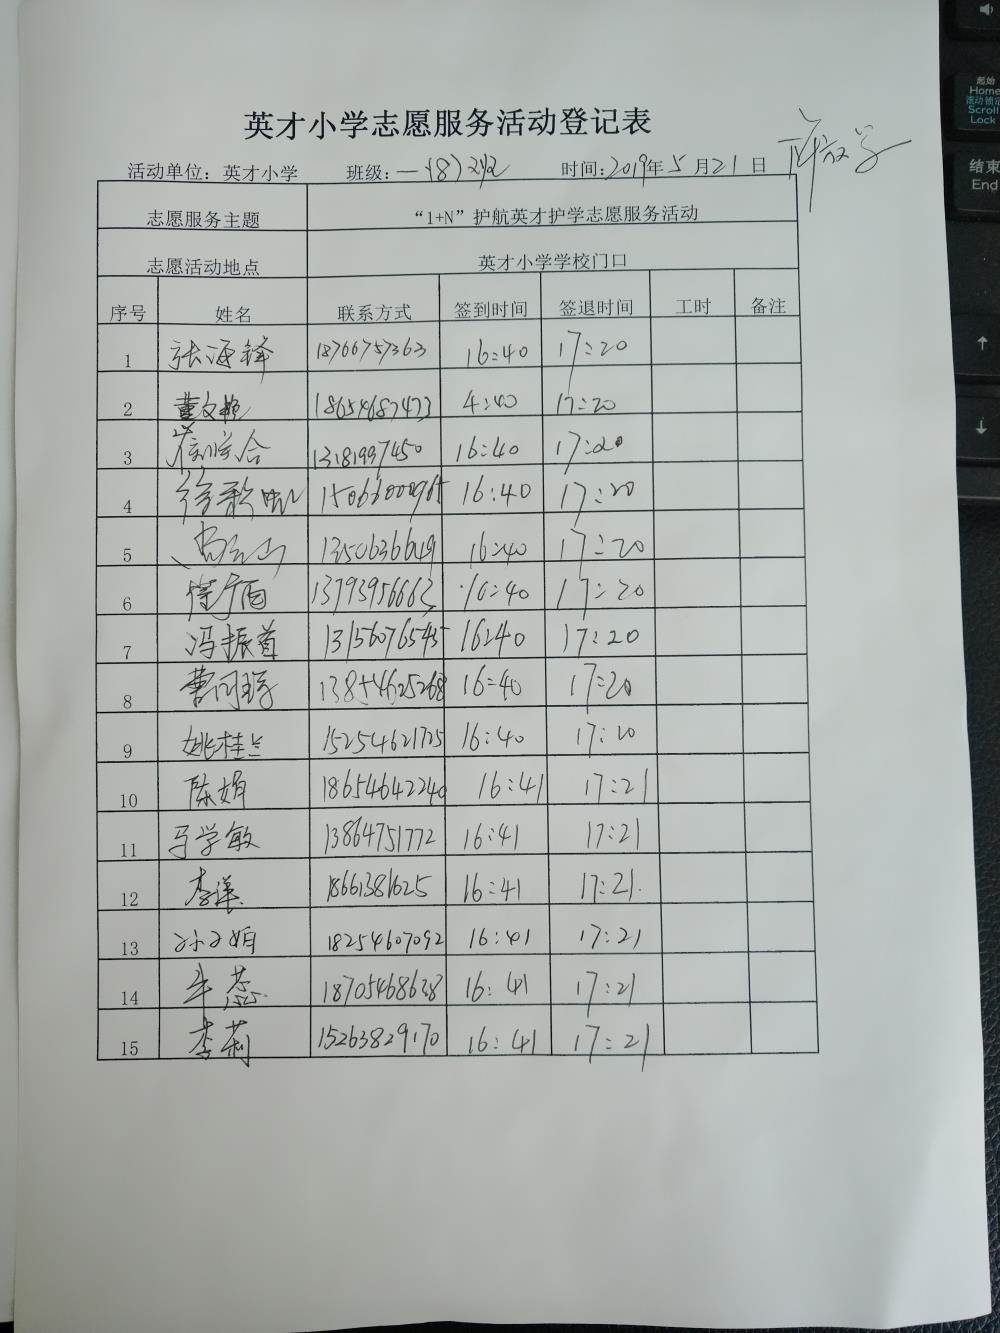 英才小学志愿服务活动登记表
放学
活动单位：英才小学 班级：一(8)班 时间：2019年5月21日
志愿服务主题 “1+N”护航英才护学志愿服务活动
志愿活动地点 英才小学学校门口
序号 姓名 联系方式 签到时间 签退时间 工时 备注
1 张海锋 18766757363 16:40 17:20
2 董文艳 18654687473 4:40 17:20
3 13181997450 16:40 17:20
4 15066000965 16:40 17:20
5 13506366049 16:40 17:20
6 13793956663 16:40 17:20
7 冯振首 13156076545 16:40 17:20
8 13854625268 16:40 17:20
9 姚桂兰 15254621725 16:40 17:20
10 陈娟 18654642240 16:41 17:21
11 马学敏 13864751772 16:41 17:21
12 李洋 18661381625 16:41 17:21
13 孙娟 18254607092 16:41 17:21
14 牟蕊 18705468638 16:41 17:21
15 李莉 15263829170 16:41 17:21
起始
Home
滚动锁定
Scroll
Lock
结束
End
↑
↓